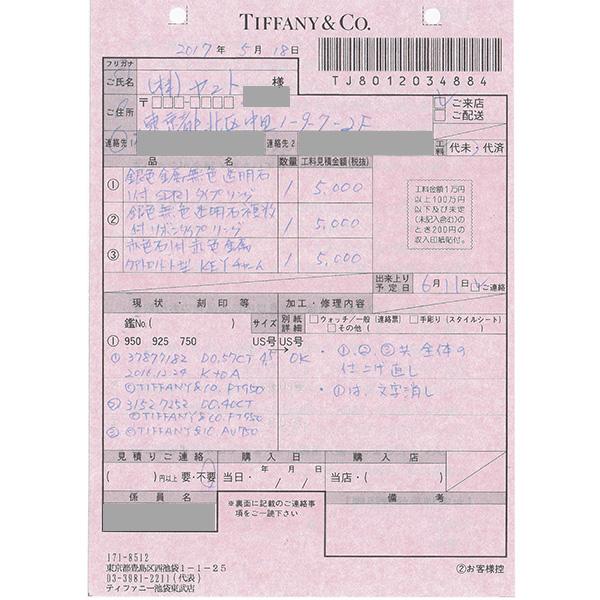 TIFFANY & CO.
2017年 5月 18日
TJ8012034884
フリガナ
ご氏名 (株)ヤマト 様
〒
ご住所 東京都北区中里1-9-7-2F
ご来店
ご配送
連絡先1 連絡先2
工料 代未・代済
品名 数量 工料見積金額(税抜)
① 銀色金属無色透明石
1付 リング 1 5,000
② 銀色無色透明石複数
付リボンタイプリング 1 5,000
③ 赤色石1付赤色金属
KEYチャーム 1 5,000
工料金額1万円
以上100万円
以下及び未定
(未記入含む)の
とき200円の
収入印紙貼付。
出来上り
予定日 6月11日 ご連絡
現状・刻印等 加工・修理内容
鑑No.( ) サイズ 別紙詳細 ウォッチ/一般(連絡票) 手彫り(スタイルシート)
その他( )
① 950 925 750 US号 US号
① 37877182 D0.57CT 4.5 OK
2016.12.24 K to A
©TIFFANY&CO. PT950
② 31527252 D0.40CT
©TIFFANY&CO. PT950
③ ©TIFFANY&CO AU750
・①、②、③共全体の
仕上げ直し
・①は、文字消し
見積りご連絡 購入日 購入店
( )円以上 要・不要 当日・ 年 月 日 当店・( )
係員名
※裏面に記載のご連絡事
項をご一読下さい
備考
171-8512
東京都豊島区西池袋1-1-25
03-3981-2211(代表)
ティファニー池袋東武店
②お客様控